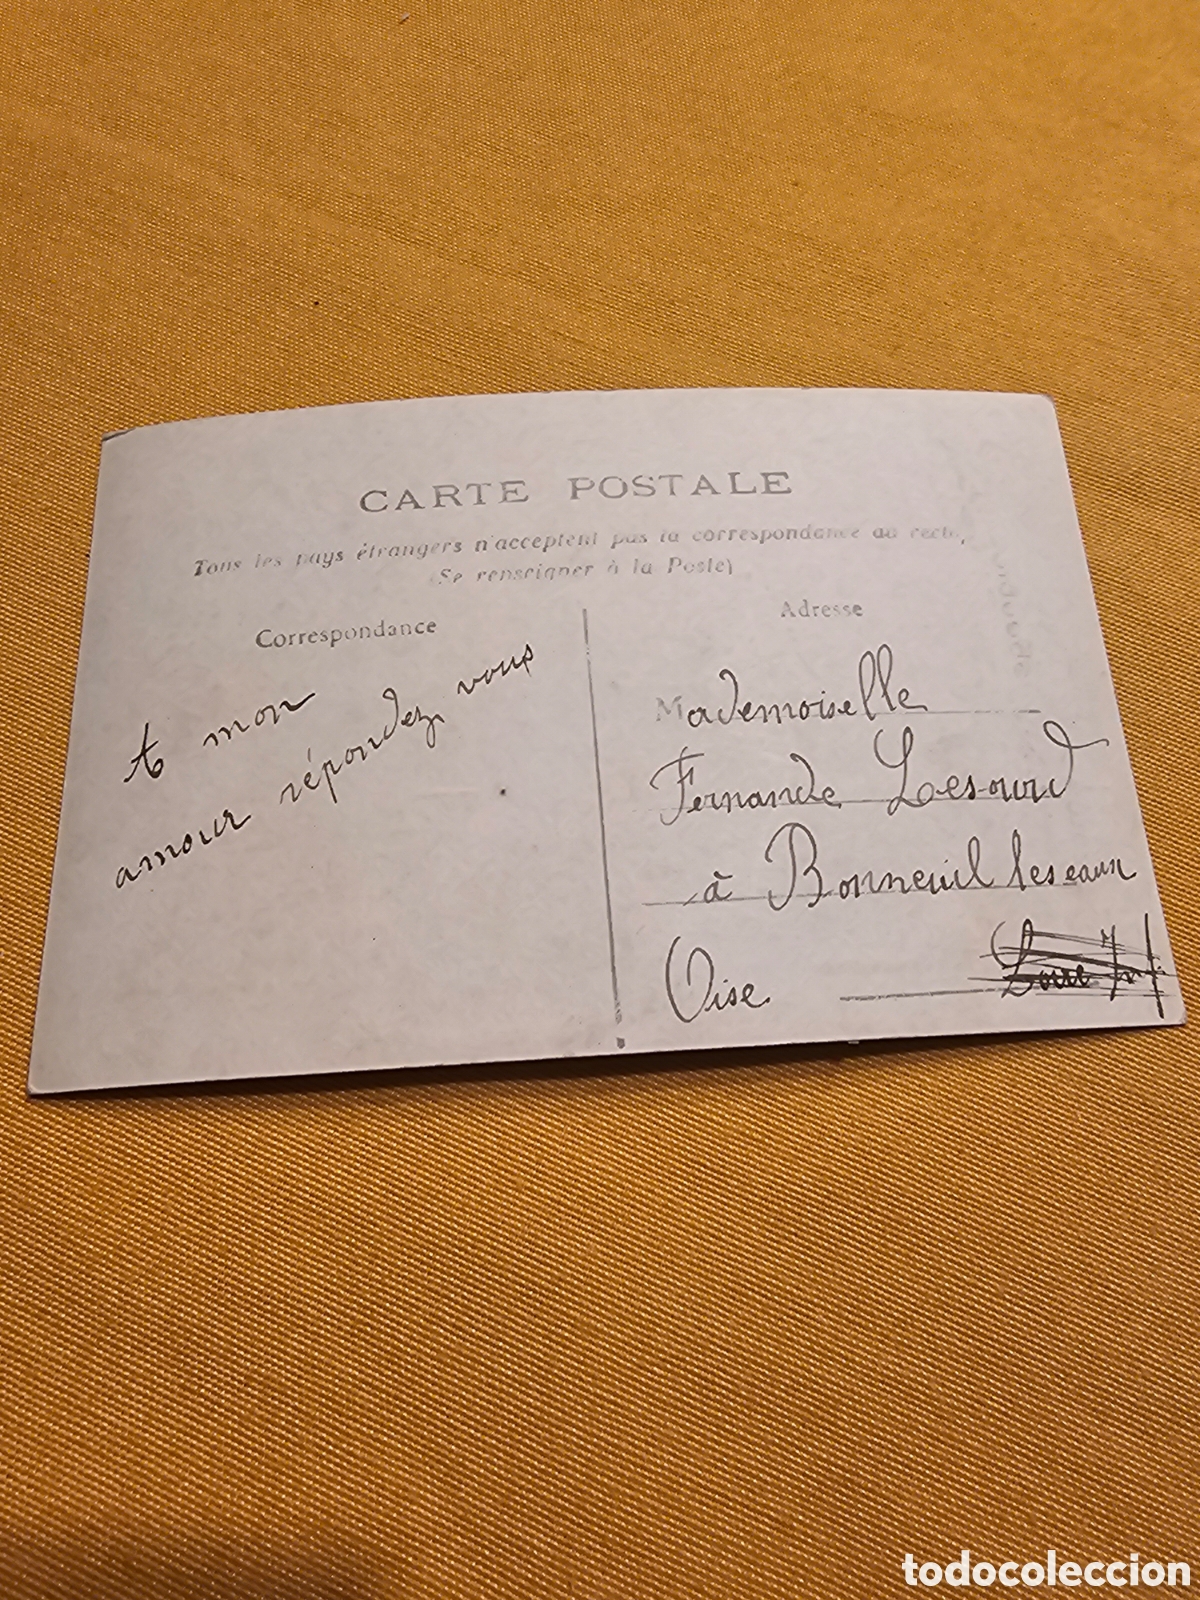 CARTE POSTALE
Tous les pays étrangers n'acceptent pas la correspondance au recto,
(Se renseigner à la Poste)
Correspondance
A mon
amour répondez vous
Adresse
Mademoiselle
Fernande Lesourd
à Bonneuil les eaux
Oise
todocoleccion